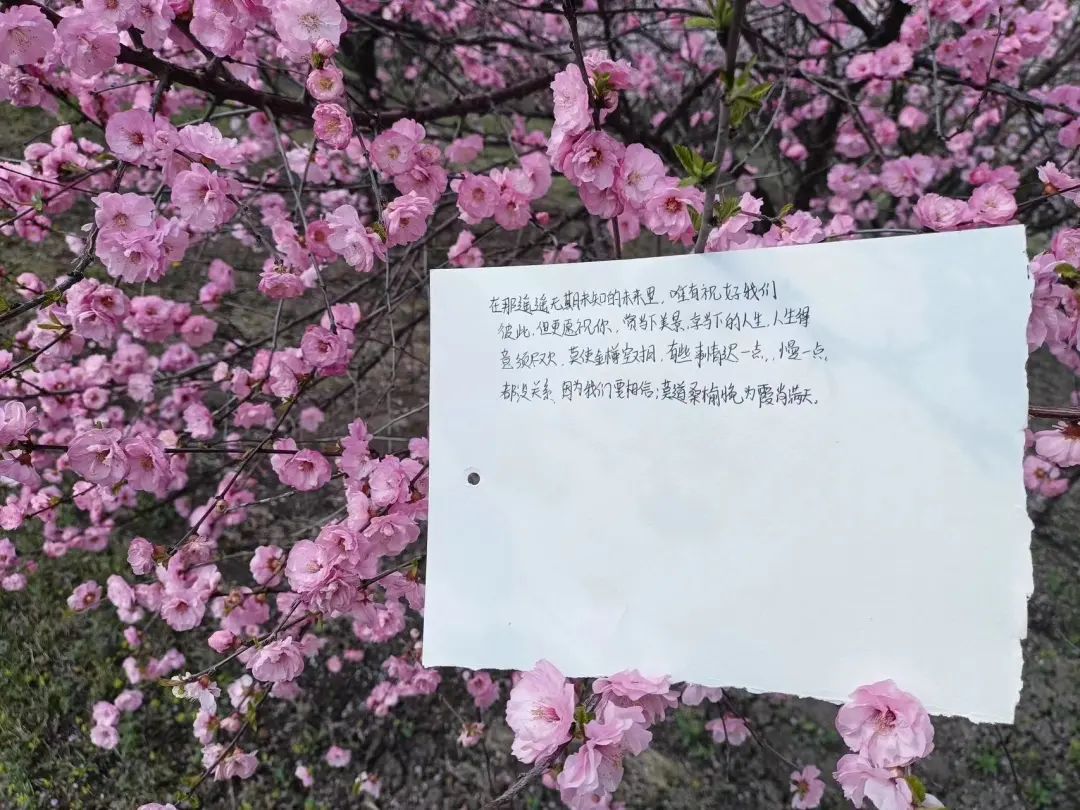 在那遥遥无期未知的未来里，唯有祝好我们
彼此，但更愿祝你、赏当下美景，享当下的人生，人生得
意须尽欢，莫使金樽空对月，有些事情迟一点，慢一点，
都没关系，因为我们要相信；莫道桑榆晚，为霞尚满天。